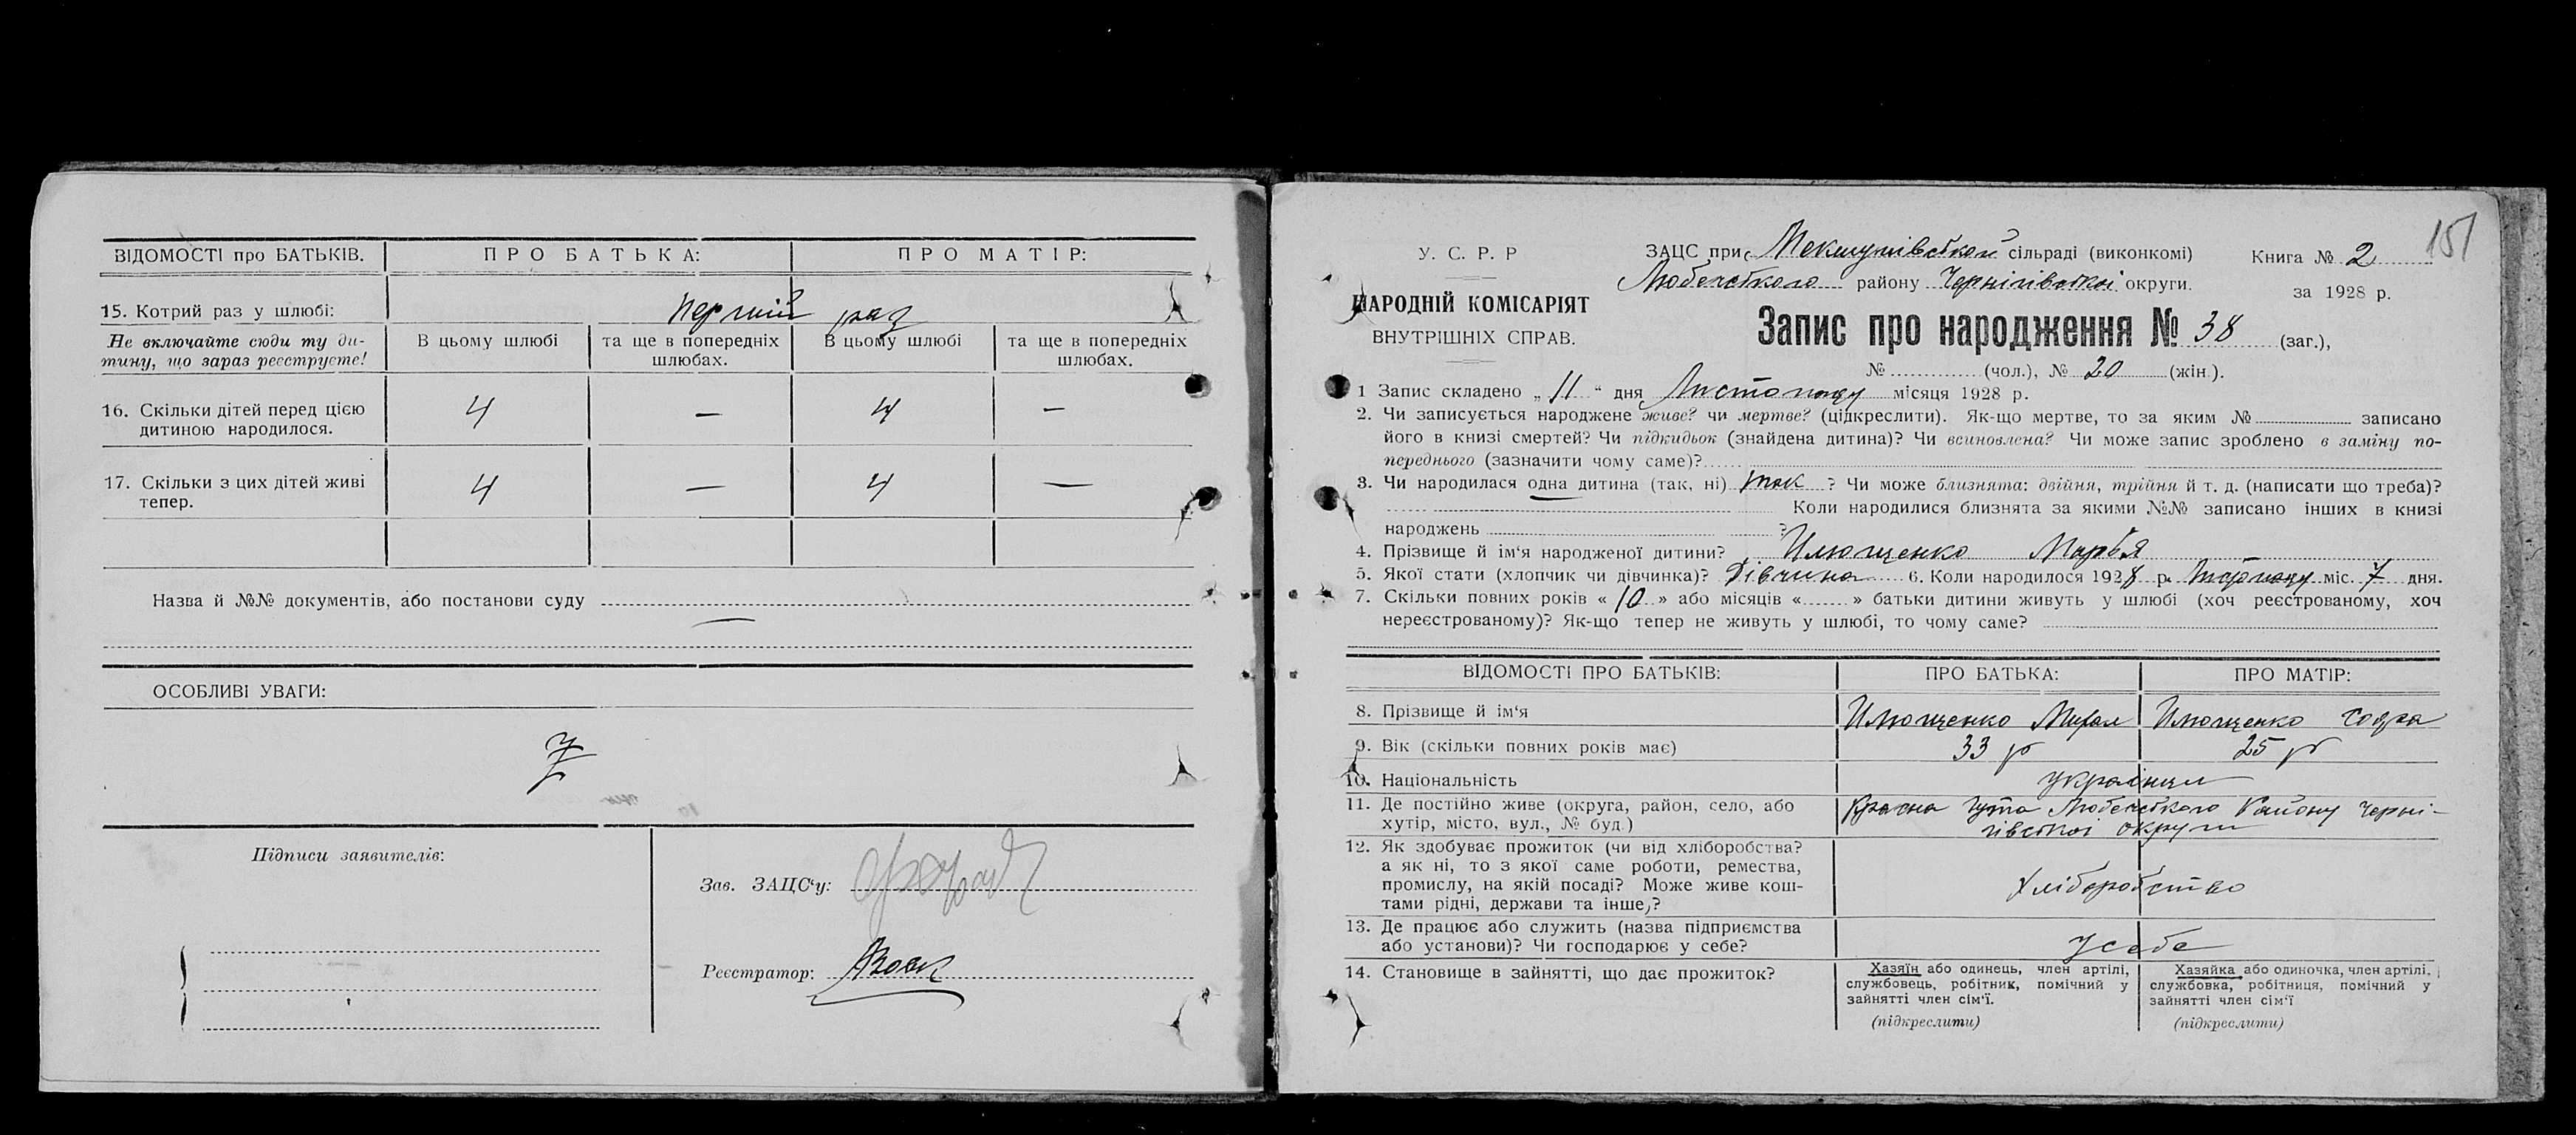 ВІДОМОСТІ про БАТЬКІВ. ПРО БАТЬКА: ПРО МАТІР:
15. Котрий раз у шлюбі: перший раз
Не включайте сюди ту ди-
тину, що зараз реєструєте!
В цьому шлюбі та ще в попередніх шлюбах. В цьому шлюбі та ще в попередніх шлюбах.
16. Скільки дітей перед цією
дитиною народилося. 4 — 4 —
17. Скільки з цих дітей живі
тепер. 4 — 4 —
Назва й №№ документів, або постанови суду
—
ОСОБЛИВІ УВАГИ:
Підписи заявителів:
Зав. ЗАЦС'у:
Реєстратор:
151
У. С. Р. Р
НАРОДНІЙ КОМІСАРІЯТ
ВНУТРІШНІХ СПРАВ.
ЗАЦС при сільраді (виконкомі)
Любечського району Чернігівської округи.
Книга № 2
за 1928 р.
Запис про народження № 38 (заг.),
№ (чол.), № 20 (жін.).
1 Запис складено „ 11 “ дня Листопаду місяця 1928 р.
2. Чи записується народжене живе? чи мертве? (підкреслити). Як-що мертве, то за яким № записано
його в книзі смертей? Чи підкидьок (знайдена дитина)? Чи всиновлена? Чи може запис зроблено в заміну по-
переднього (зазначити чому саме)?
3. Чи народилася одна дитина (так, ні) так ? Чи може близнята: двійня, трійня й т. д. (написати що треба)?
Коли народилися близнята за якими №№ записано інших в книзі
народжень ?
4. Прізвище й ім'я народженої дитини? Илющенко Марья
5. Якої стати (хлопчик чи дівчинка)? Дівчина 6. Коли народилося 1928 р. міс. 7 дня.
7. Скільки повних років « 10 » або місяців « » батьки дитини живуть у шлюбі (хоч реєстрованому, хоч
нереєстрованому)? Як-що тепер не живуть у шлюбі, то чому саме?
ВІДОМОСТІ ПРО БАТЬКІВ: ПРО БАТЬКА: ПРО МАТІР:
8. Прізвище й ім'я Илющенко Илющенко
9. Вік (скільки повних років має) 33 р 25 р
10. Національність українці
11. Де постійно живе (округа, район, село, або
хутір, місто, вул., № буд.)
Красна Гута Любечського Району Черні-
гівської округи
12. Як здобуває прожиток (чи від хліборобства?
а як ні, то з якої саме роботи, ремества,
промислу, на якій посаді? Може живе кош-
тами рідні, держави та інше)?
хліборобство
13. Де працює або служить (назва підприємства
або установи)? Чи господарює у себе?
у себе
14. Становище в зайнятті, що дає прожиток?
Хазяїн або одинець, член артілі,
службовець, робітник, помічний у
зайнятті член сім'ї.
(підкреслити)
Хазяйка або одиночка, член артілі,
службовка, робітниця, помічний у
зайнятті член сім'ї
(підкреслити)